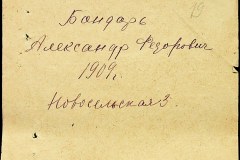 19
Бондарь
Александр Федорович
1909г.
Новосельская 3.